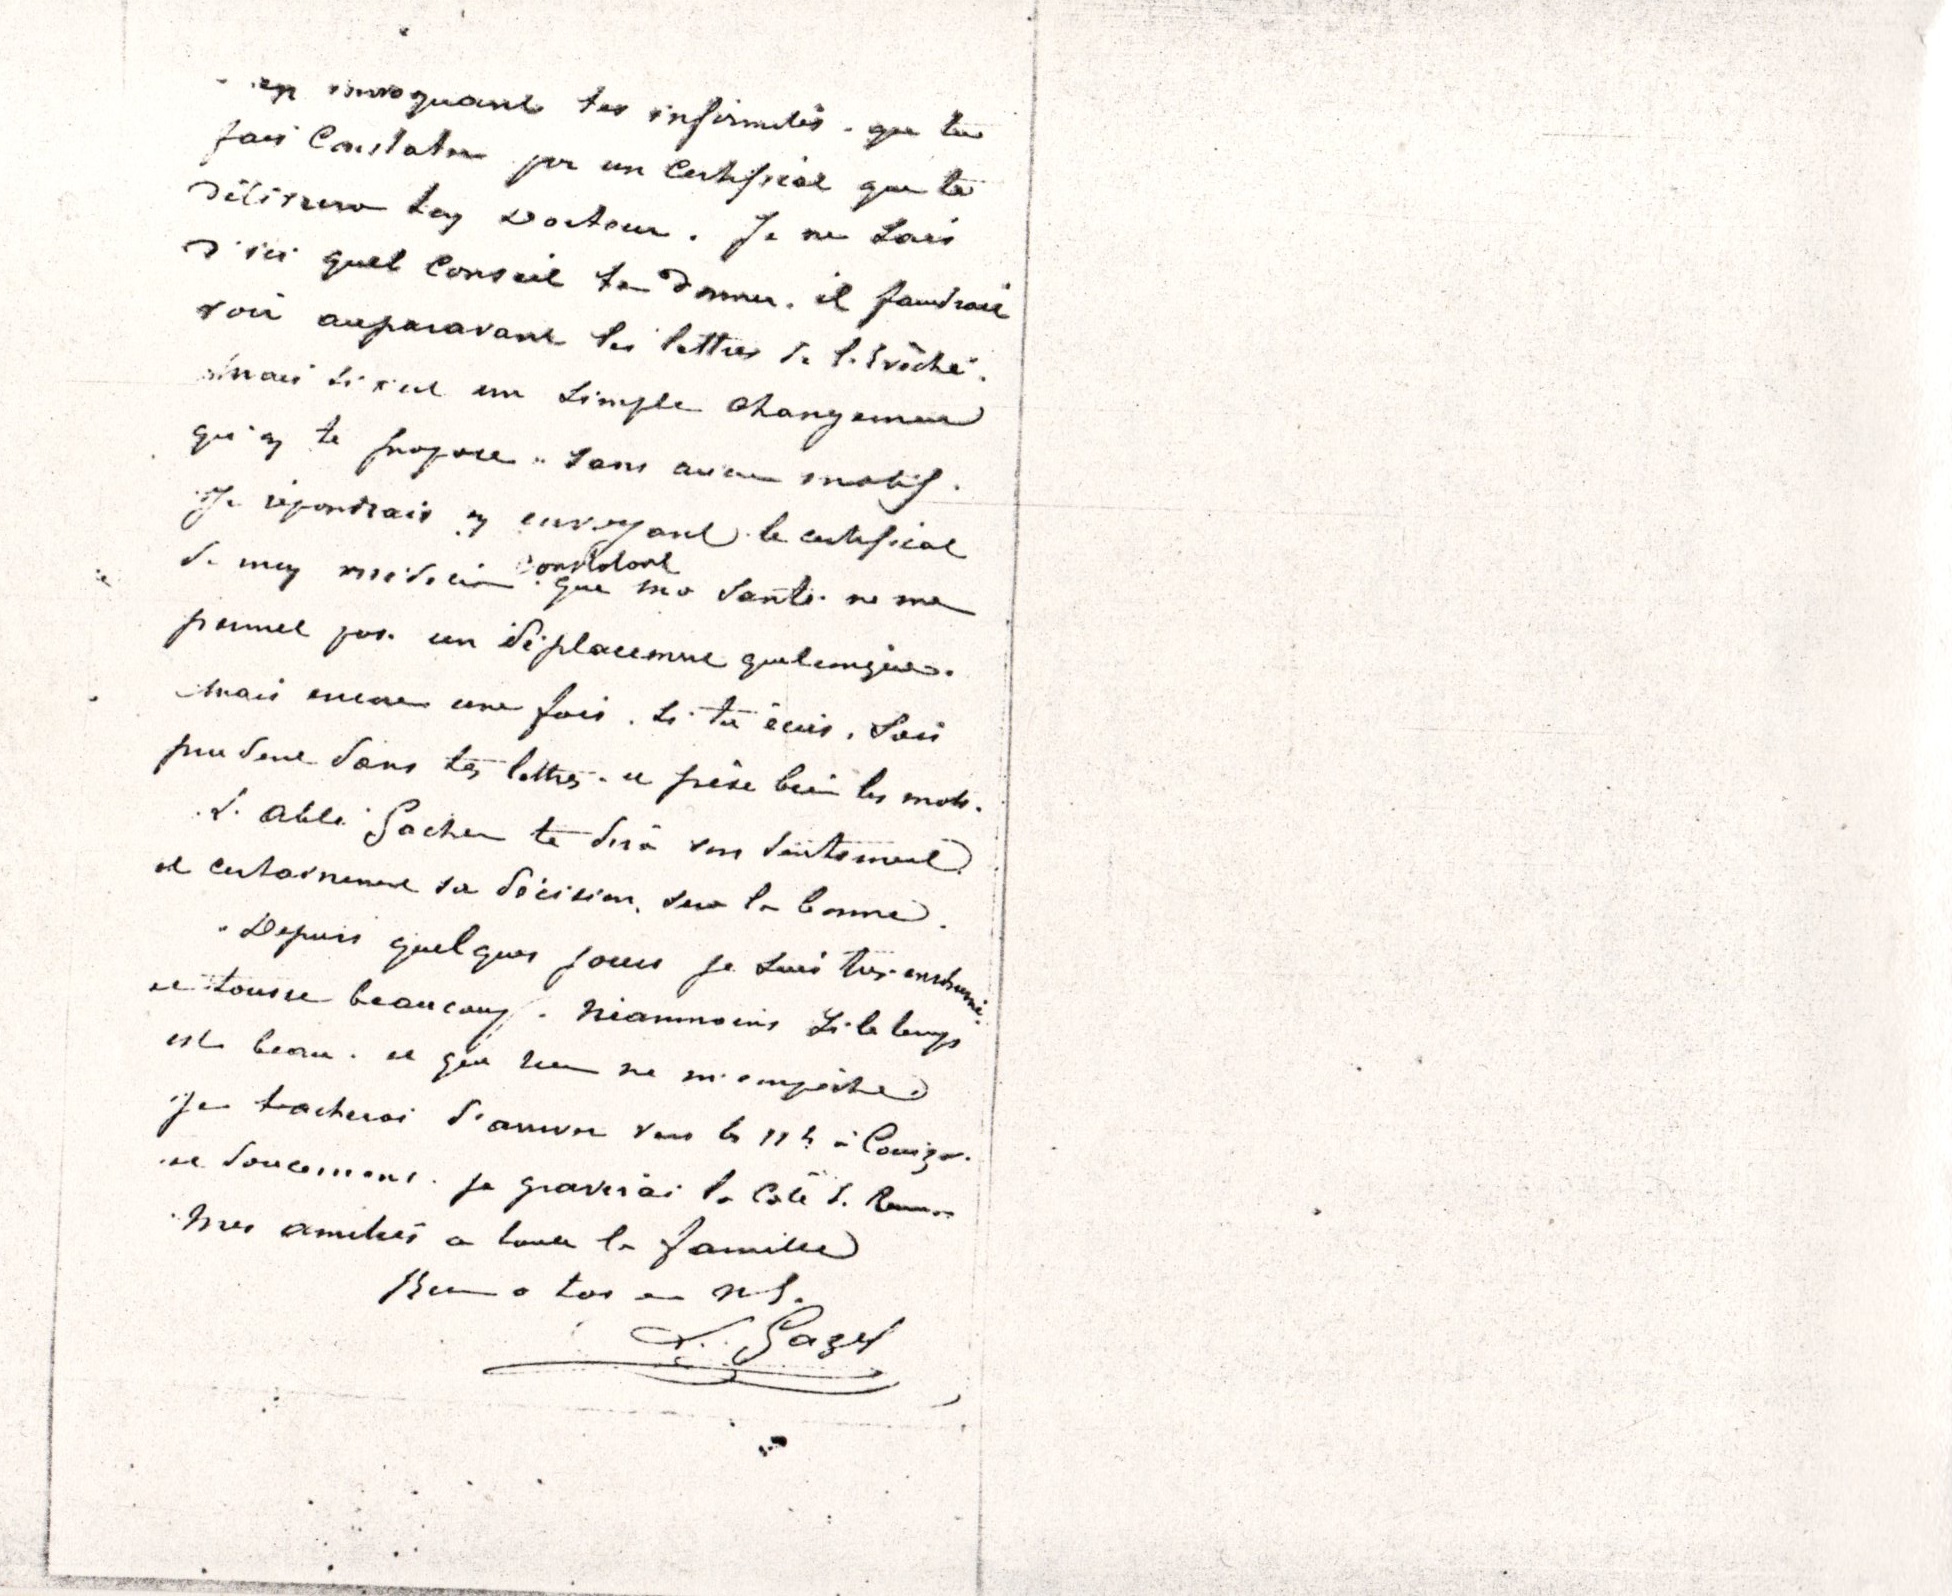 en invoquant tes infirmités. que tu
fais Constater par un Certificat que te
délivrera ton Docteur. Je ne sais
d'ici quel Conseil te donner. il faudrait
voir auparavant les lettres de l'Evêché.
mais si c'est un simple changement
qu'on te propose. sans aucun motif.
Je répondrais en envoyant le certificat
de mon médecin constatant que ma santé ne me
permet pas un déplacement quelconque.
Mais encore une fois. si tu écris, sois
prudent dans tes lettres. et pèse bien les mots.
L'Abbé Gachen te dira son sentiment
et certainement sa décision, sera la bonne.
Depuis quelques jours je suis très enrhumé.
et tousse beaucoup. Néanmoins si le temps
est beau. et que rien ne m'empêche
Je tacherai d'arriver vers les 11h à Couiza.
et doucement. je gravirai la Côte de Rennes
Mes amitiés a toute la famille
Bien a toi en N S.
L. Gazel